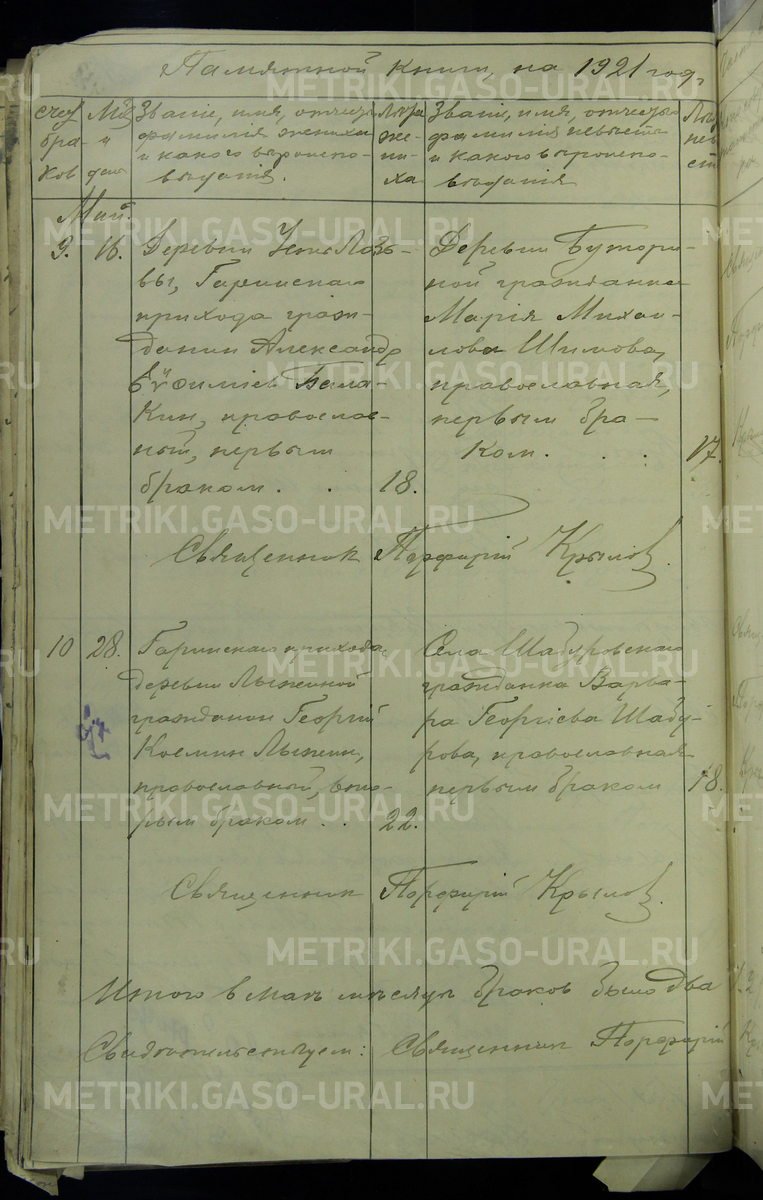 Памятной книги, на 1921 годъ
Счет бра- ков
М-ц и день
Званiе, имя, отчество фамилiя жениха и какого вероиспо- веданiя.
Лета же- ни- ха
Званiе, имя, отчество фамилiя невесты и какого вероиспо- веданiя
Лета нев ест
Май.
9. 16.
Деревни Усть Лозь-
вы, Гаринскаго
прихода граж-
данин Александр
Евфимiев Бала-
кин, православ-
ный, первым
браком. . 18.
Деревни Бутори-
ной гражданка
Марiя Михаи-
лова Шимова,
православная,
первым бра-
ком. . . 17.
Священник Порфирiй Крылов.
10 28.
Гаринскаго прихода,
деревни Лыжиной
гражданин Георгiй
Космин Лыжин,
православный, вто-
рым браком . . 22.
Села Шабуровскаго
гражданка Варва-
ра Георгiева Шабу-
рова, православная
первым браком 18.
Священник Порфирiй Крылов.
Итого в мае месяце браков было два
Свидетельствуем: Священник Порфирiй
METRIKI.GASO-URAL.RU